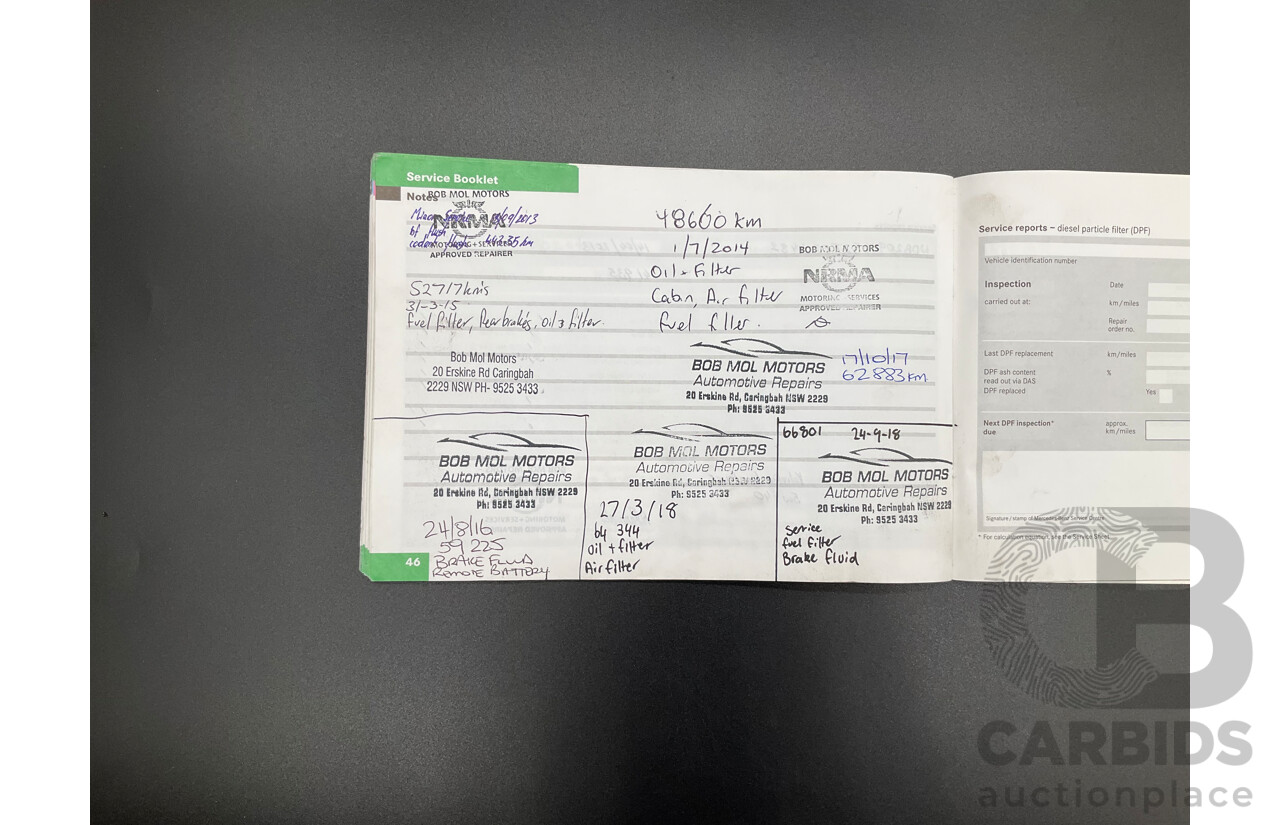 Service Booklet
Notes
BOB MOL MOTORS
Minor Service /09/2013
bf flush
NRMA
MOTORING + SERVICES
APPROVED REPAIRER
52717kms
31-3-15
fuel filter, Rear brakes, oil & filter.
Bob Mol Motors
20 Erskine Rd Caringbah
2229 NSW PH- 9525 3433
48600 km
1/7/2014
Oil + Filter
Cabin, Air filter
fuel filter.
BOB MOL MOTORS
NRMA
MOTORING SERVICES
APPROVED REPAIRER
BOB MOL MOTORS
Automotive Repairs
20 Erskine Rd, Caringbah NSW 2229
Ph: 9525 3433
17/10/17
62883 KM
BOB MOL MOTORS
Automotive Repairs
20 Erskine Rd, Caringbah NSW 2229
Ph: 9525 3433
24/8/16
59 225
BRAKE FLUID
REMOTE BATTERY
BOB MOL MOTORS
Automotive Repairs
20 Erskine Rd, Caringbah NSW 2229
Ph: 9525 3433
27/3/18
64 344
oil + filter
Air filter
66801 24-9-18
BOB MOL MOTORS
Automotive Repairs
20 Erskine Rd, Caringbah NSW 2229
Ph: 9525 3433
Service
fuel filter
Brake fluid
46
Service reports – diesel particle filter (DPF)
Vehicle identification number
Inspection
carried out at:
Date
km/miles
Repair
order no.
Last DPF replacement km/miles
DPF ash content %
read out via DAS
DPF replaced Yes
Next DPF inspection* approx.
due km/miles
Signature / stamp of Mercedes-Benz Service Centre
* For calculation equation, see the Service Sheet
CB
CARBIDS
auctionplace